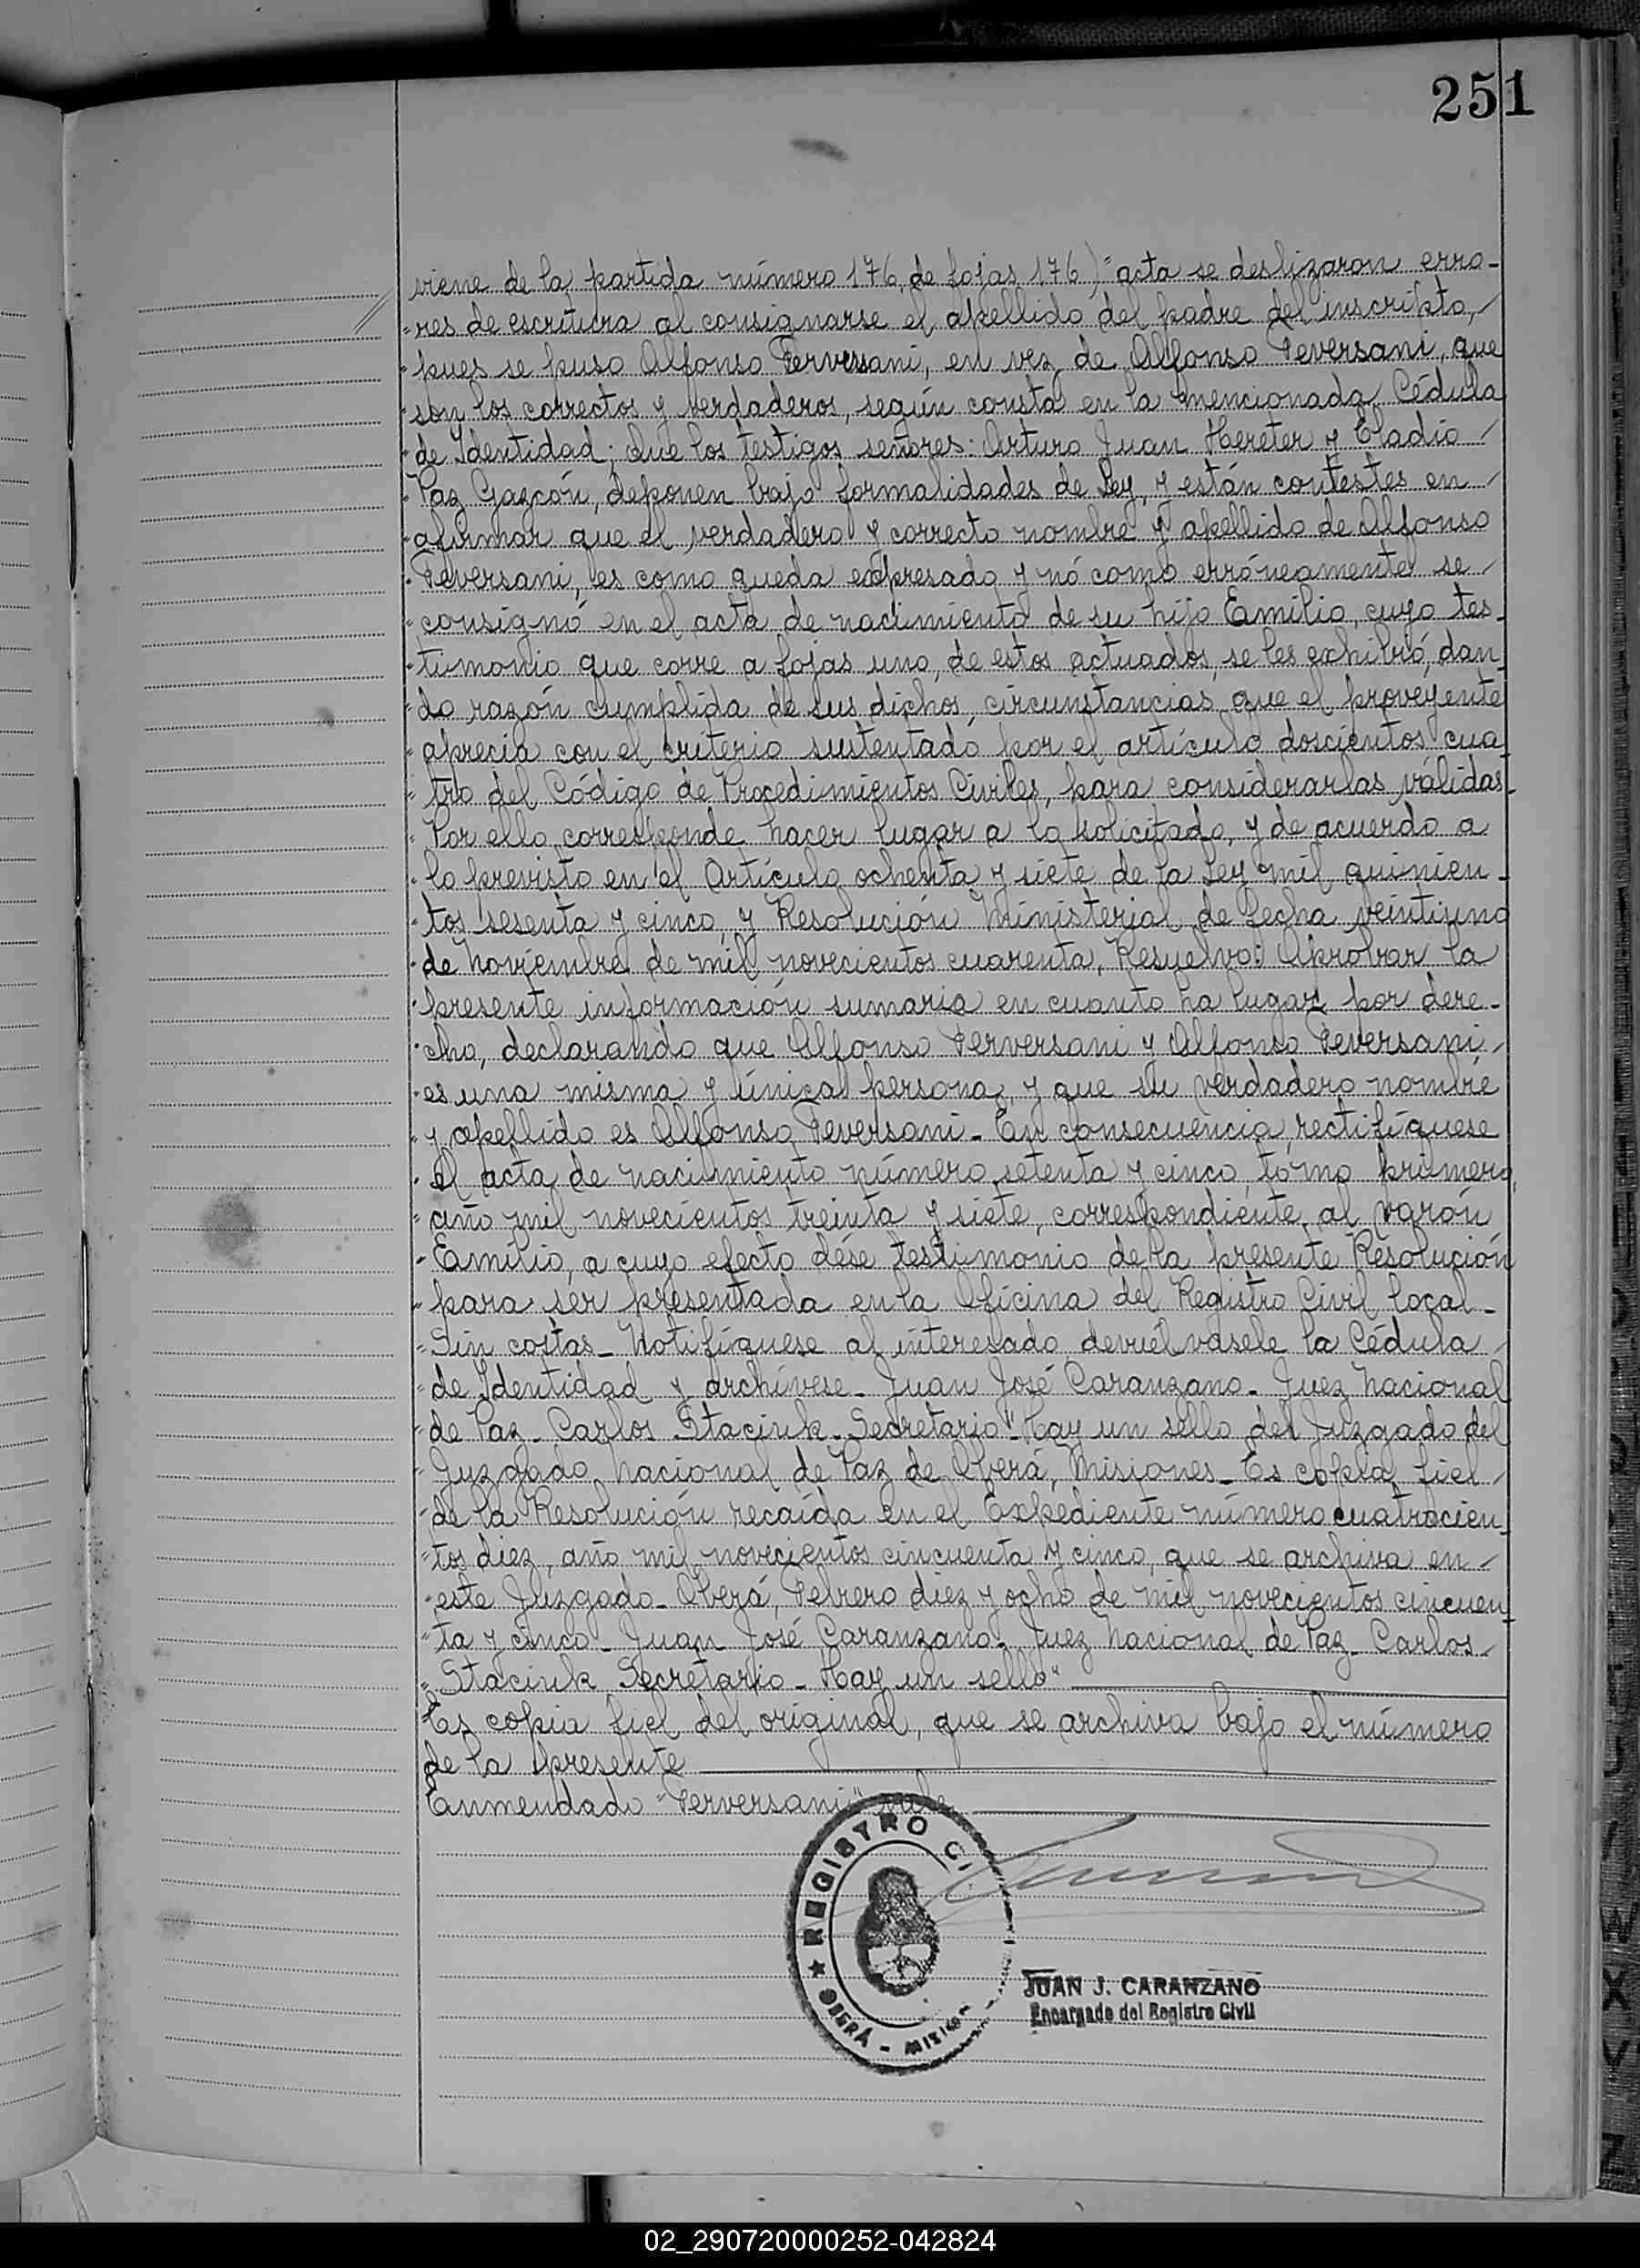 251
viene de la partida número 176, de fojas 176) "acta se deslizaron erro-
"res de escritura al consignarse el apellido del padre del inscripto,
"pues se puso Alfonso Perversani, en vez de Alfonso Peversani, que
"son los correctos y verdaderos, según consta en la mencionada Cédula
"de Identidad; Que los testigos señores: Arturo Juan Hereter y Eladio
"Paz Gazcón, deponen bajo formalidades de Ley, y están contestes en
"afirmar que el verdadero y correcto nombre y apellido de Alfonso
"Peversani, es como queda expresado y nó como erróneamente se
"consignó en el acta de nacimiento de su hijo Emilio, cuyo tes-
"timonio que corre a fojas uno, de estos actuados, se les exhibió, dan-
"do razón cumplida de sus dichos, circunstancias que el proveyente
"aprecia con el criterio sustentado por el artículo doscientos cua-
"tro del Código de Procedimientos Civiles, para considerarlas válidas-
"Por ello corresponde hacer lugar a lo solicitado, y de acuerdo a
"lo previsto en el Artículo ochenta y siete de la Ley mil quinien-
"tos sesenta y cinco y Resolución Ministerial de fecha veintiuno
"de Noviembre de mil novecientos cuarenta, Resuelvo: Aprobar la
"presente información sumaria en cuanto ha lugar por dere-
"cho, declarando que Alfonso Perversani y Alfonso Peversani
"es una misma y única persona, y que su verdadero nombre
"y apellido es Alfonso Peversani- En consecuencia rectifíquese
"el acta de nacimiento número setenta y cinco, tómo primero,
"año mil novecientos treinta y siete, correspondiente al varón
"Emilio, a cuyo efecto dése testimonio de la presente Resolución
"para ser presentada en la Oficina del Registro Civil local-
"Sin costas- Notifíquese al interesado, devuélvasele la Cédula
"de Identidad y archívese- Juan José Caranzano- Juez Nacional
"de Paz- Carlos Staciuk- Secretario"- Hay un sello del Juzgado del
"Juzgado Nacional de Paz de Oberá, Misiones- Es copia fiel
"de la Resolución recaída en el Expediente número cuatrocien-
"tos diez, año mil novecientos cincuenta y cinco, que se archiva en
"este Juzgado- Oberá, Febrero diez y ocho de mil novecientos cincuen-
"ta y cinco- Juan José Caranzano- Juez Nacional de Paz- Carlos
"Staciuk Secretario- Hay un sello"
Es copia fiel del original, que se archiva bajo el número
de la presente
Enmendado "Perversani" vale
REGISTRO C.
OBERÁ - MISIONES
JUAN J. CARANZANO
Encargado del Registro Civil
02_290720000252-042824